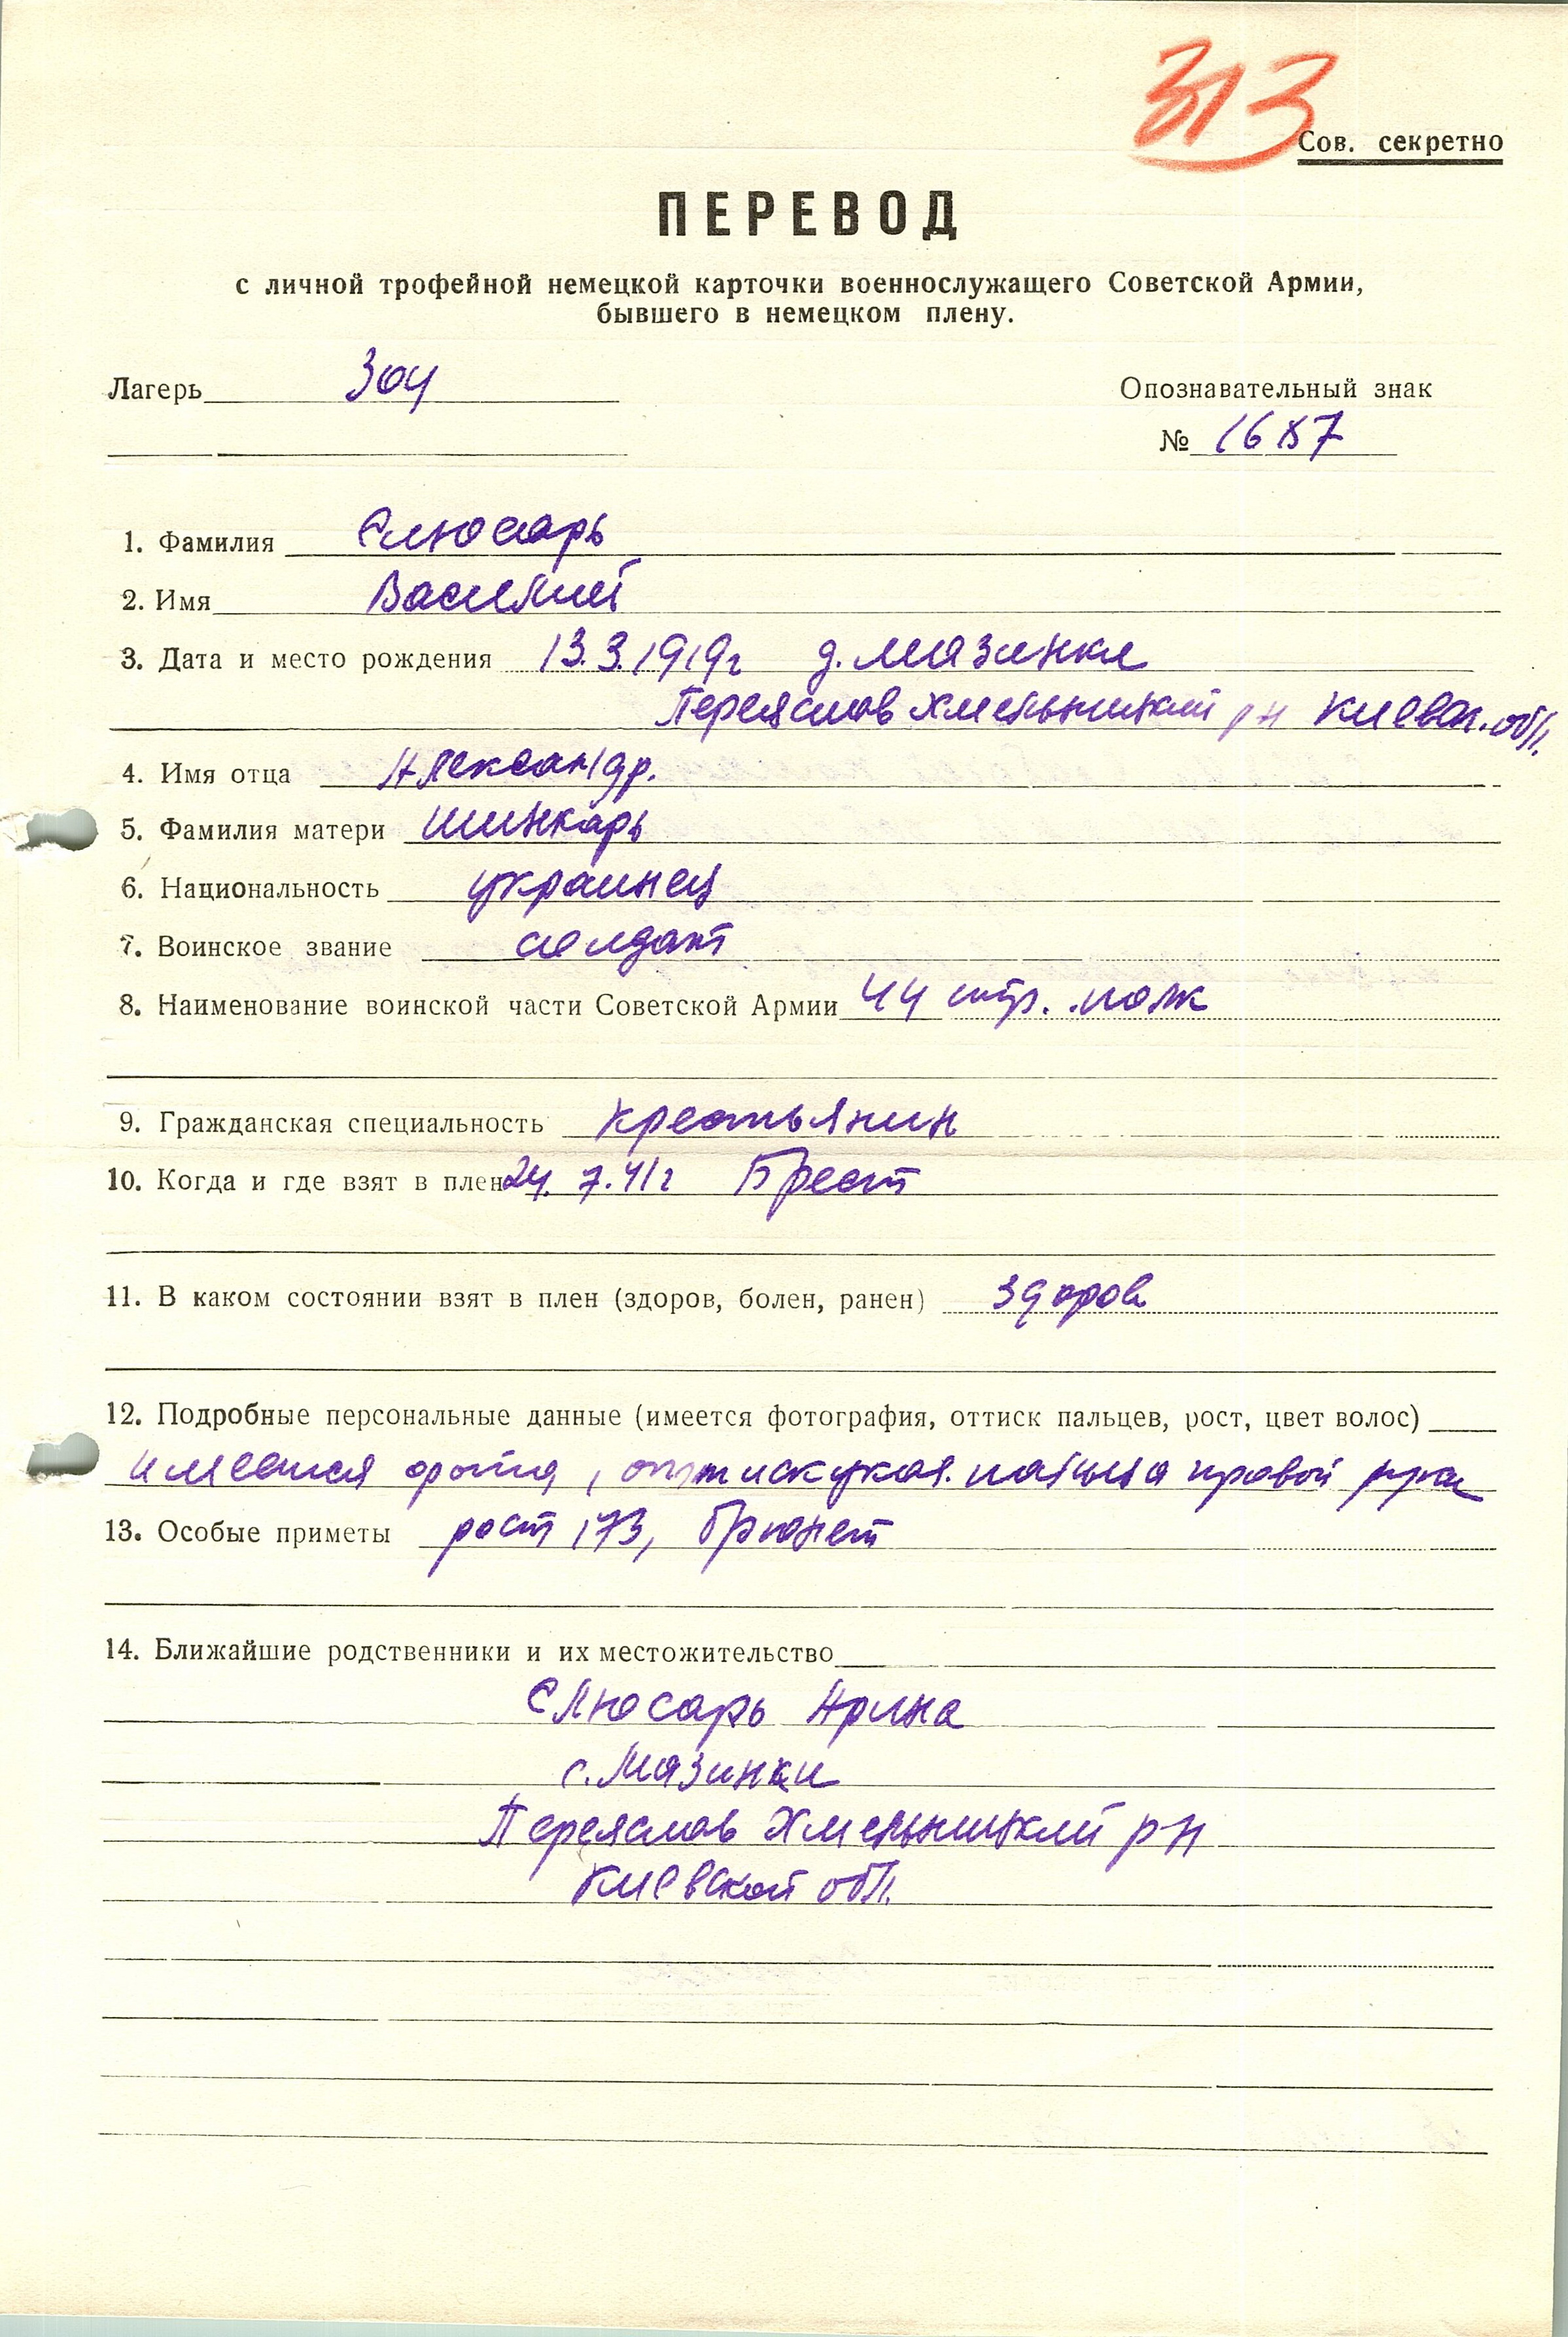 313
Сов. секретно
ПЕРЕВОД
с личной трофейной немецкой карточки военнослужащего Советской Армии,
бывшего в немецком плену.
Лагерь 304
Опознавательный знак
№ 1687
1. Фамилия Слюсарь
2. Имя Василий
3. Дата и место рождения 13.3.1919г д. Мазинки
Переяслов Хмельницкий р н Киевск. обл.
4. Имя отца Александр.
5. Фамилия матери Шинкарь
6. Национальность украинец
7. Воинское звание солдат
8. Наименование воинской части Советской Армии 44 стр. полк
9. Гражданская специальность крестьянин
10. Когда и где взят в плен 24. 7. 41г Брест
11. В каком состоянии взят в плен (здоров, болен, ранен) здоров
12. Подробные персональные данные (имеется фотография, оттиск пальцев, рост, цвет волос)
имеется фото, оттиск указ. пальца правой руки
13. Особые приметы рост 173, брюнет
14. Ближайшие родственники и их местожительство
Слюсарь Арина
с. Мазинки
Переяслов Хмельницкий р н
Киевской обл.